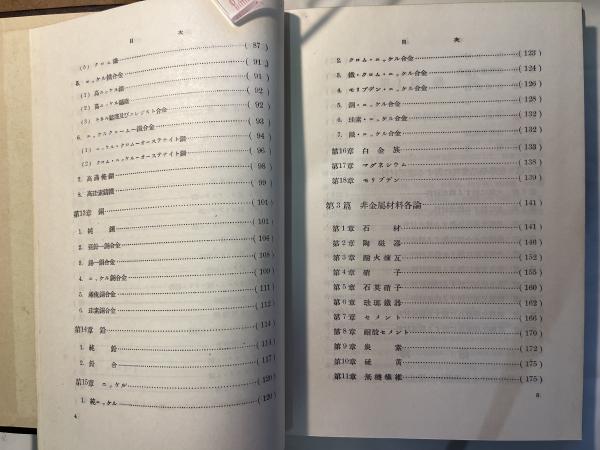 目　次
(5) クロム鋼 ( 87 )
5. ニッケル鐵合金 ( 91 )
(1) 高ニッケル鋼 ( 91 )
(2) 高ニッケル鑄鐵 ( 92 )
(3) モネル鑄鐵及びニレジスト合金 ( 92 )
6. ニッケルクローム—鐵合金 ( 93 )
(1) ニッケル・クローム・オーステナイト鋼 ( 94 )
(2) クロム・ニッケル・オーステナイト鋼 ( 96 )
7. 高滿俺鋼 ( 98 )
8. 高珪素鑄鐵 ( 99 )
第13章　銅 ( 101 )
1. 純　銅 ( 101 )
2. 亜鉛—銅合金 ( 104 )
3. 錫—銅合金 ( 108 )
4. ニッケル銅合金 ( 109 )
5. 銅合金 ( 111 )
6. 珪素銅合金 ( 112 )
第14章　鉛 ( 114 )
1. 純　鉛 ( 114 )
2. 鉛　合 ( 117 )
第15章　ニッケル ( 120 )
1. 純ニッケル ( 120 )
4
目　次
2. クロム・ニッケル合金 ( 123 )
3. 鐵・クロム・ニッケル合金 ( 124 )
4. モリブデン・ニッケル合金 ( 126 )
5. 銅・ニッケル合金 ( 128 )
6. 珪素・ニッケル合金 ( 132 )
7. ・ニッケル合金 ( 132 )
第16章　白金族 ( 133 )
第17章　マグネシウム ( 138 )
第18章　モリブデン ( 139 )
第3篇　非金属材料各論 ( 141 )
第1章　石　材 ( 141 )
第2章　陶磁器 ( 146 )
第3章　耐火煉瓦 ( 152 )
第4章　硝　子 ( 155 )
第5章　石英硝子 ( 160 )
第6章　琺瑯鐵器 ( 162 )
第7章　セメント ( 166 )
第8章　耐酸セメント ( 170 )
第9章　炭　素 ( 172 )
第10章　硫　黄 ( 175 )
第11章　無機纎維 ( 175 )